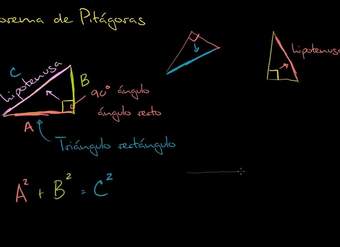 orema de Pitágoras
C
hipotenusa
B
90° ángulo
ángulo recto
A
Triángulo rectángulo
A² + B² = C²
hipotenusa